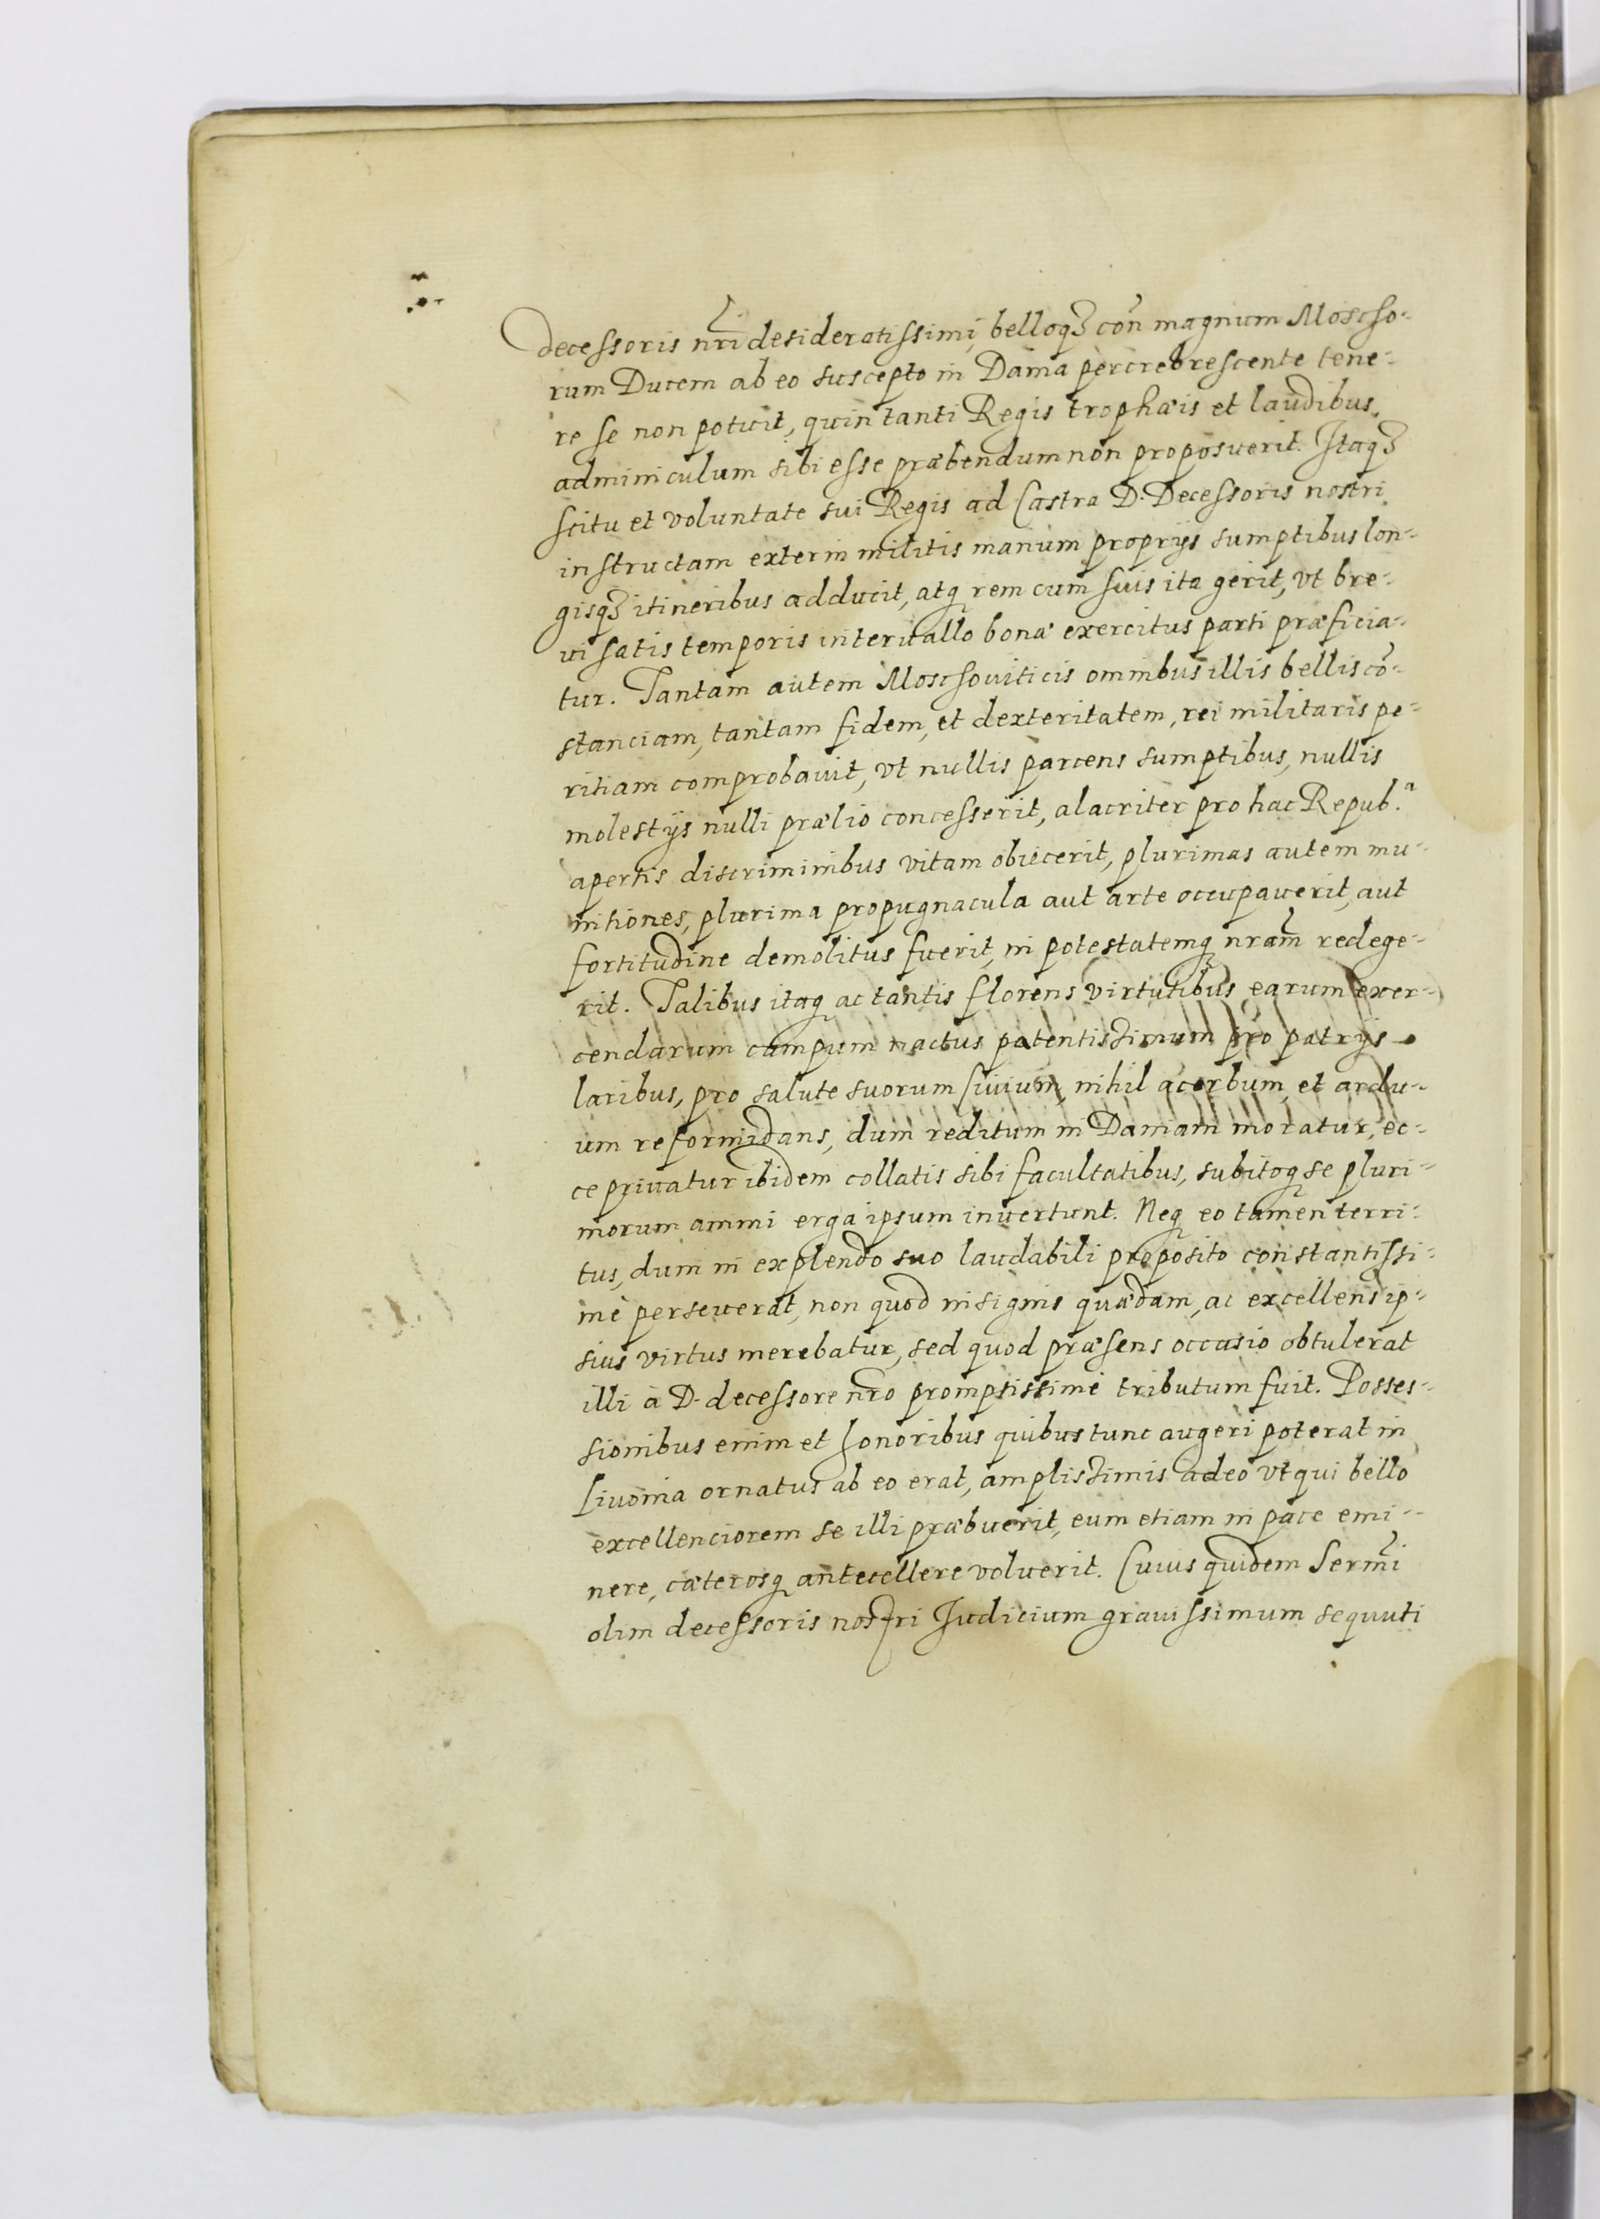 decessoris nr̃i desideratissimi, belloqꝫ con̄ magnum Moscho-
rum Ducem ab eo suscepto in Dania percrebrescente tene-
re se non potuit, quin tanti Regis trophæis et laudibus
adminiculum sibi esse præbendum non proposuerit. Itaqꝫ
scitu et voluntate sui Regis ad Castra D. Decessoris nostri
instructam externi militis manum proprijs sumptibus lon-
gisqꝫ itineribus adducit, atqꝫ rem cum suis ita gerit, vt bre-
ui satis temporis interuallo bonæ exercitus parti præficia-
tur. Tantam autem Moschouiticis omnibus illis bellis cō-
stanciam, tantam fidem, et dexteritatem, rei militaris pe-
ritiam comprobauit, vt nullis parcens sumptibus, nullis
molestijs nulli prælio concesserit, alacriter pro hac Repub.ᵃ
apertis discriminibus vitam obiecerit, plurimas autem mu-
nitiones, plurima propugnacula aut arte occupauerit, aut
fortitudine demolitus fuerit, in potestatemqꝫ nrām redege-
rit. Talibus itaqꝫ ac tantis florens virtutibus, earum exer-
cendarum campum nactus patentissimum pro patrijs
laribus, pro salute suorum Ciuium, nihil acerbum, et ardu-
um reformidans, dum reditum in Daniam moratur, ec-
ce priuatur ibidem collatis sibi facultatibus, subitoqꝫ se pluri-
morum animi erga ipsum inuertunt. Neqꝫ eo tamen terri-
tus, dum in explendo suo laudabili proposito constantissi-
mè perseuerat, non quod insignis quædam, ac excellens ip-
sius virtus merebatur, sed quod præsens occasio obtulerat
illi à D. decessore nr̄o promptissimè tributum fuit. Posses-
sionibus enim et honoribus quibus tunc augeri poterat in
Liuonia ornatus ab eo erat, amplissimis adeò vt qui bello
excellenciorem se illi præbuerit, eum etiam in pace emi-
nere, cæterosqꝫ antecellere voluerit. Cuius quidem Serm̄i
olim decessoris nostri Judicium grauissimum sequuti